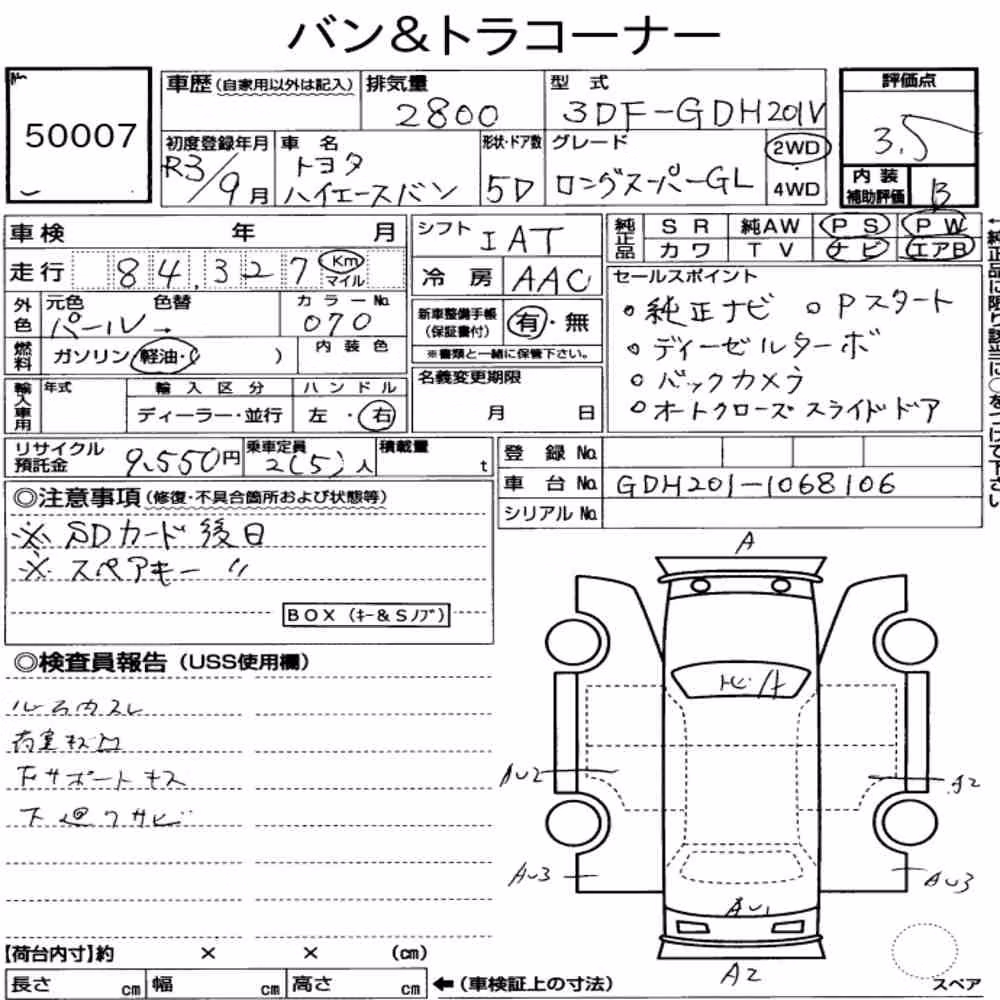 バン&トラコーナー
50007
車歴(自家用以外は記入) 排気量 2800 型式 3DF-GDH201V 評価点 3.5
初度登録年月 R3/9月 車名 トヨタ ハイエースバン 形状・ドア数 5D グレード ロングスーパーGL 2WD 4WD 内装補助評価 B
車検 年 月 シフト IAT 純正品 SR 純AW PS PW
カワ TV ナビ エアB
走行 84,327 Km マイル 冷房 AAC
外色 元色 パール 色替 → カラーNo. 070
新車整備手帳(保証書付) 有・無
※書類と一緒に保管下さい。
燃料 ガソリン・軽油・( ) 内装色
輸入車用 年式 輸入区分 ディーラー・並行 ハンドル 左・右
名義変更期限 月 日
セールスポイント
○純正ナビ ○Pスタート
○ディーゼルターボ
○バックカメラ
○オートクローズスライドドア
←純正品に限り該当に○をつけて下さい
リサイクル預託金 9,550円 乗車定員 2(5)人 積載量 t
登録No.
車台No. GDH201-1068106
シリアルNo.
◎注意事項(修復・不具合箇所および状態等)
※SDカード後日
※スペアキー 〃
BOX (キー&Sノブ)
◎検査員報告(USS使用欄)
ル
荷室キズ凹
下サポートキス
下廻ワサビ
A
AU2
A2
AU3
AU3
AU1
A2
スペア
【荷台内寸】約 × × (cm)
長さ cm 幅 cm 高さ cm ←(車検証上の寸法)